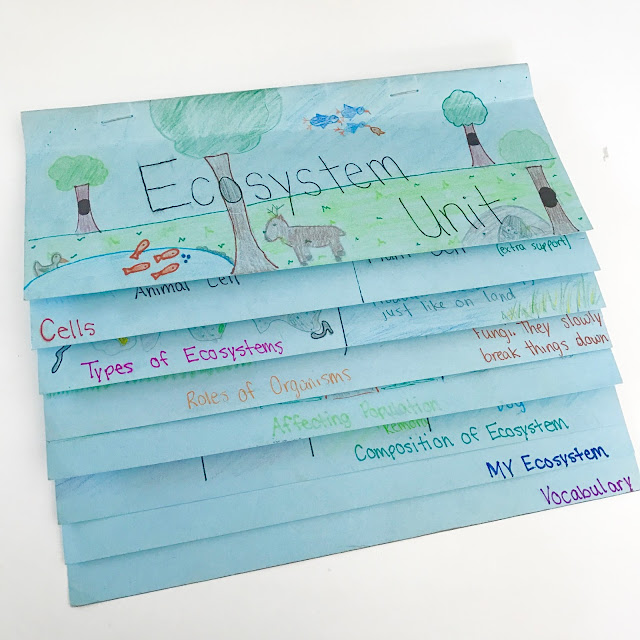 Ecosystem
Unit
Animal Cell
Plant Cell
(extra support)
Cells
just like on land
Types of Ecosystems
Fungi. They slowly
break things down
Roles of Organisms
Affecting Population
Remain
Composition of Ecosystem
MY Ecosystem
Vocabulary